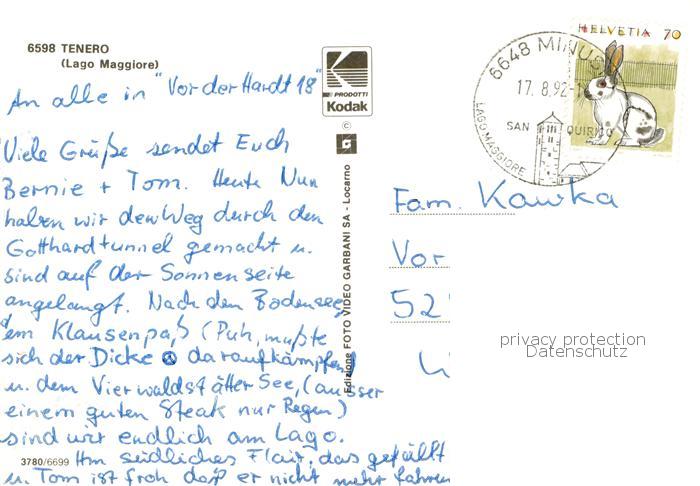 6598 TENERO
(Lago Maggiore)
An alle in "Vor der Hardt 18"
Viele Grüße sendet Euch
Bernie + Tom. Heute Nun
haben wir den Weg durch den
Gotthardtunnel gemacht u.
sind auf der Sonnenseite
angelangt. Nach dem Bodensee,
dem Klausenpaß (Puh, mußte
sich der Dicke daraufkämpfen)
u. dem Vierwaldstätter See, (ausser
einem guten Steak nur Regen)
sind wir endlich am Lago.
Hm südliches Flair, das gefällt
u. Tom ist froh daß er nicht mehr fahren
3780/6699
K
PRODOTTI
Kodak
©
Edizione FOTO VIDEO GARBANI SA - Locarno
HELVETIA 70
6648 MINUSIO
17.8.92-1
SAN QUIRICO
LAGO MAGGIORE
Fam. Kawka
Vor
52
privacy protection
Datenschutz